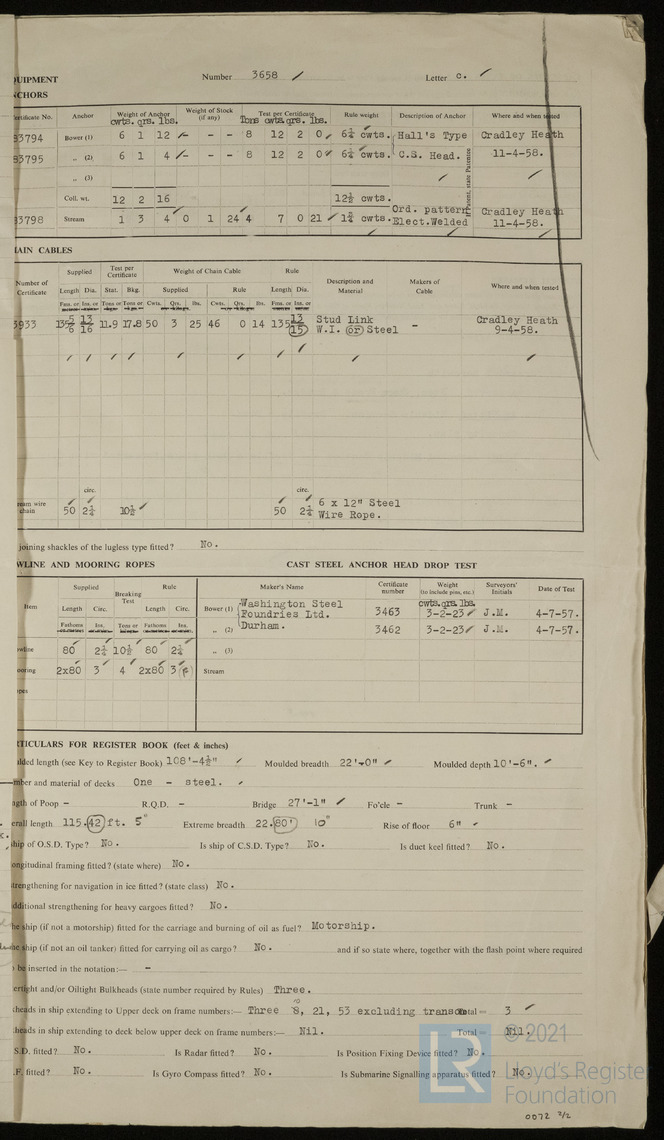 UIPMENT Number 3658 Letter o.
NCHORS
ertificate No. Anchor Weight of Anchor Weight of Stock (if any) Test per Certificate Rule weight Description of Anchor Where and when tested
cwts. qrs. lbs. Tons cwts. qrs. lbs.
83794 Bower (1) 6 1 12 - - - 8 12 2 0 6¼ cwts. Hall's Type Cradley Heath
83795 „ (2) 6 1 4 - - - 8 12 2 0 6¼ cwts. C.S. Head. 11-4-58.
„ (3)
Coll. wt. 12 2 16 12½ cwts.
83798 Stream 1 3 4 0 1 24 4 7 0 21 1¾ cwts. Ord. pattern Elect.Welded Cradley Heath 11-4-58.
AIN CABLES
Number of Certificate Supplied Test per Certificate Weight of Chain Cable Rule Description and Material Makers of Cable Where and when tested
Length Dia. Stat. Bkg. Supplied Rule Length Dia.
Fms. or Ins. or Tons or Tons or Cwts. Qrs. lbs. Cwts. Qrs. lbs. Fms. or Ins. or
3933 135 5/6 13/16 11.9 17.8 50 3 25 46 0 14 135 13/(15) Stud Link W.I. (or) Steel - Cradley Heath 9-4-58.
circ. circ.
eam wire chain 50 2¼ 10½ 50 2¼ 6 x 12" Steel Wire Rope.
joining shackles of the lugless type fitted? No.
WLINE AND MOORING ROPES CAST STEEL ANCHOR HEAD DROP TEST
Item Supplied Breaking Test Rule Maker's Name Certificate number Weight (to include pins, etc.) Surveyors' Initials Date of Test
Length Circ. Length Circ.
Fathoms Ins. Tons or Fathoms Ins. cwts.qrs.lbs.
Bower (1) Washington Steel Foundries Ltd. 3463 3-2-23 J.M. 4-7-57.
„ (2) Durham. 3462 3-2-23 J.M. 4-7-57.
wline 80 2¼ 10½ 80 2¼ „ (3)
ooring 2x80 3 4 2x80 3 Stream
opes
RTICULARS FOR REGISTER BOOK (feet & inches)
ulded length (see Key to Register Book) 108'-4½" Moulded breadth 22'-0" Moulded depth 10'-6".
mber and material of decks One - steel.
ngth of Poop - R.Q.D. - Bridge 27'-1" Fo'cle - Trunk -
erall length 115.42 ft. 5" Extreme breadth 22.80' 10" Rise of floor 6"
hip of O.S.D. Type? No. Is ship of C.S.D. Type? No. Is duct keel fitted? No.
ongitudinal framing fitted? (state where) No.
trengthening for navigation in ice fitted? (state class) No.
dditional strengthening for heavy cargoes fitted? No.
he ship (if not a motorship) fitted for the carriage and burning of oil as fuel? Motorship.
he ship (if not an oil tanker) fitted for carrying oil as cargo? No. and if so state where, together with the flash point where required
be inserted in the notation:— -
ertight and/or Oiltight Bulkheads (state number required by Rules) Three.
heads in ship extending to Upper deck on frame numbers:— Three 8, 10 21, 53 excluding transom Total = 3
heads in ship extending to deck below upper deck on frame numbers:— Nil. Total = Nil.
S.D. fitted? No. Is Radar fitted? No. Is Position Fixing Device fitted? No.
.F. fitted? No. Is Gyro Compass fitted? No. Is Submarine Signalling apparatus fitted? No.
LR © 2021
Lloyd's Register
Foundation
0072 2/2